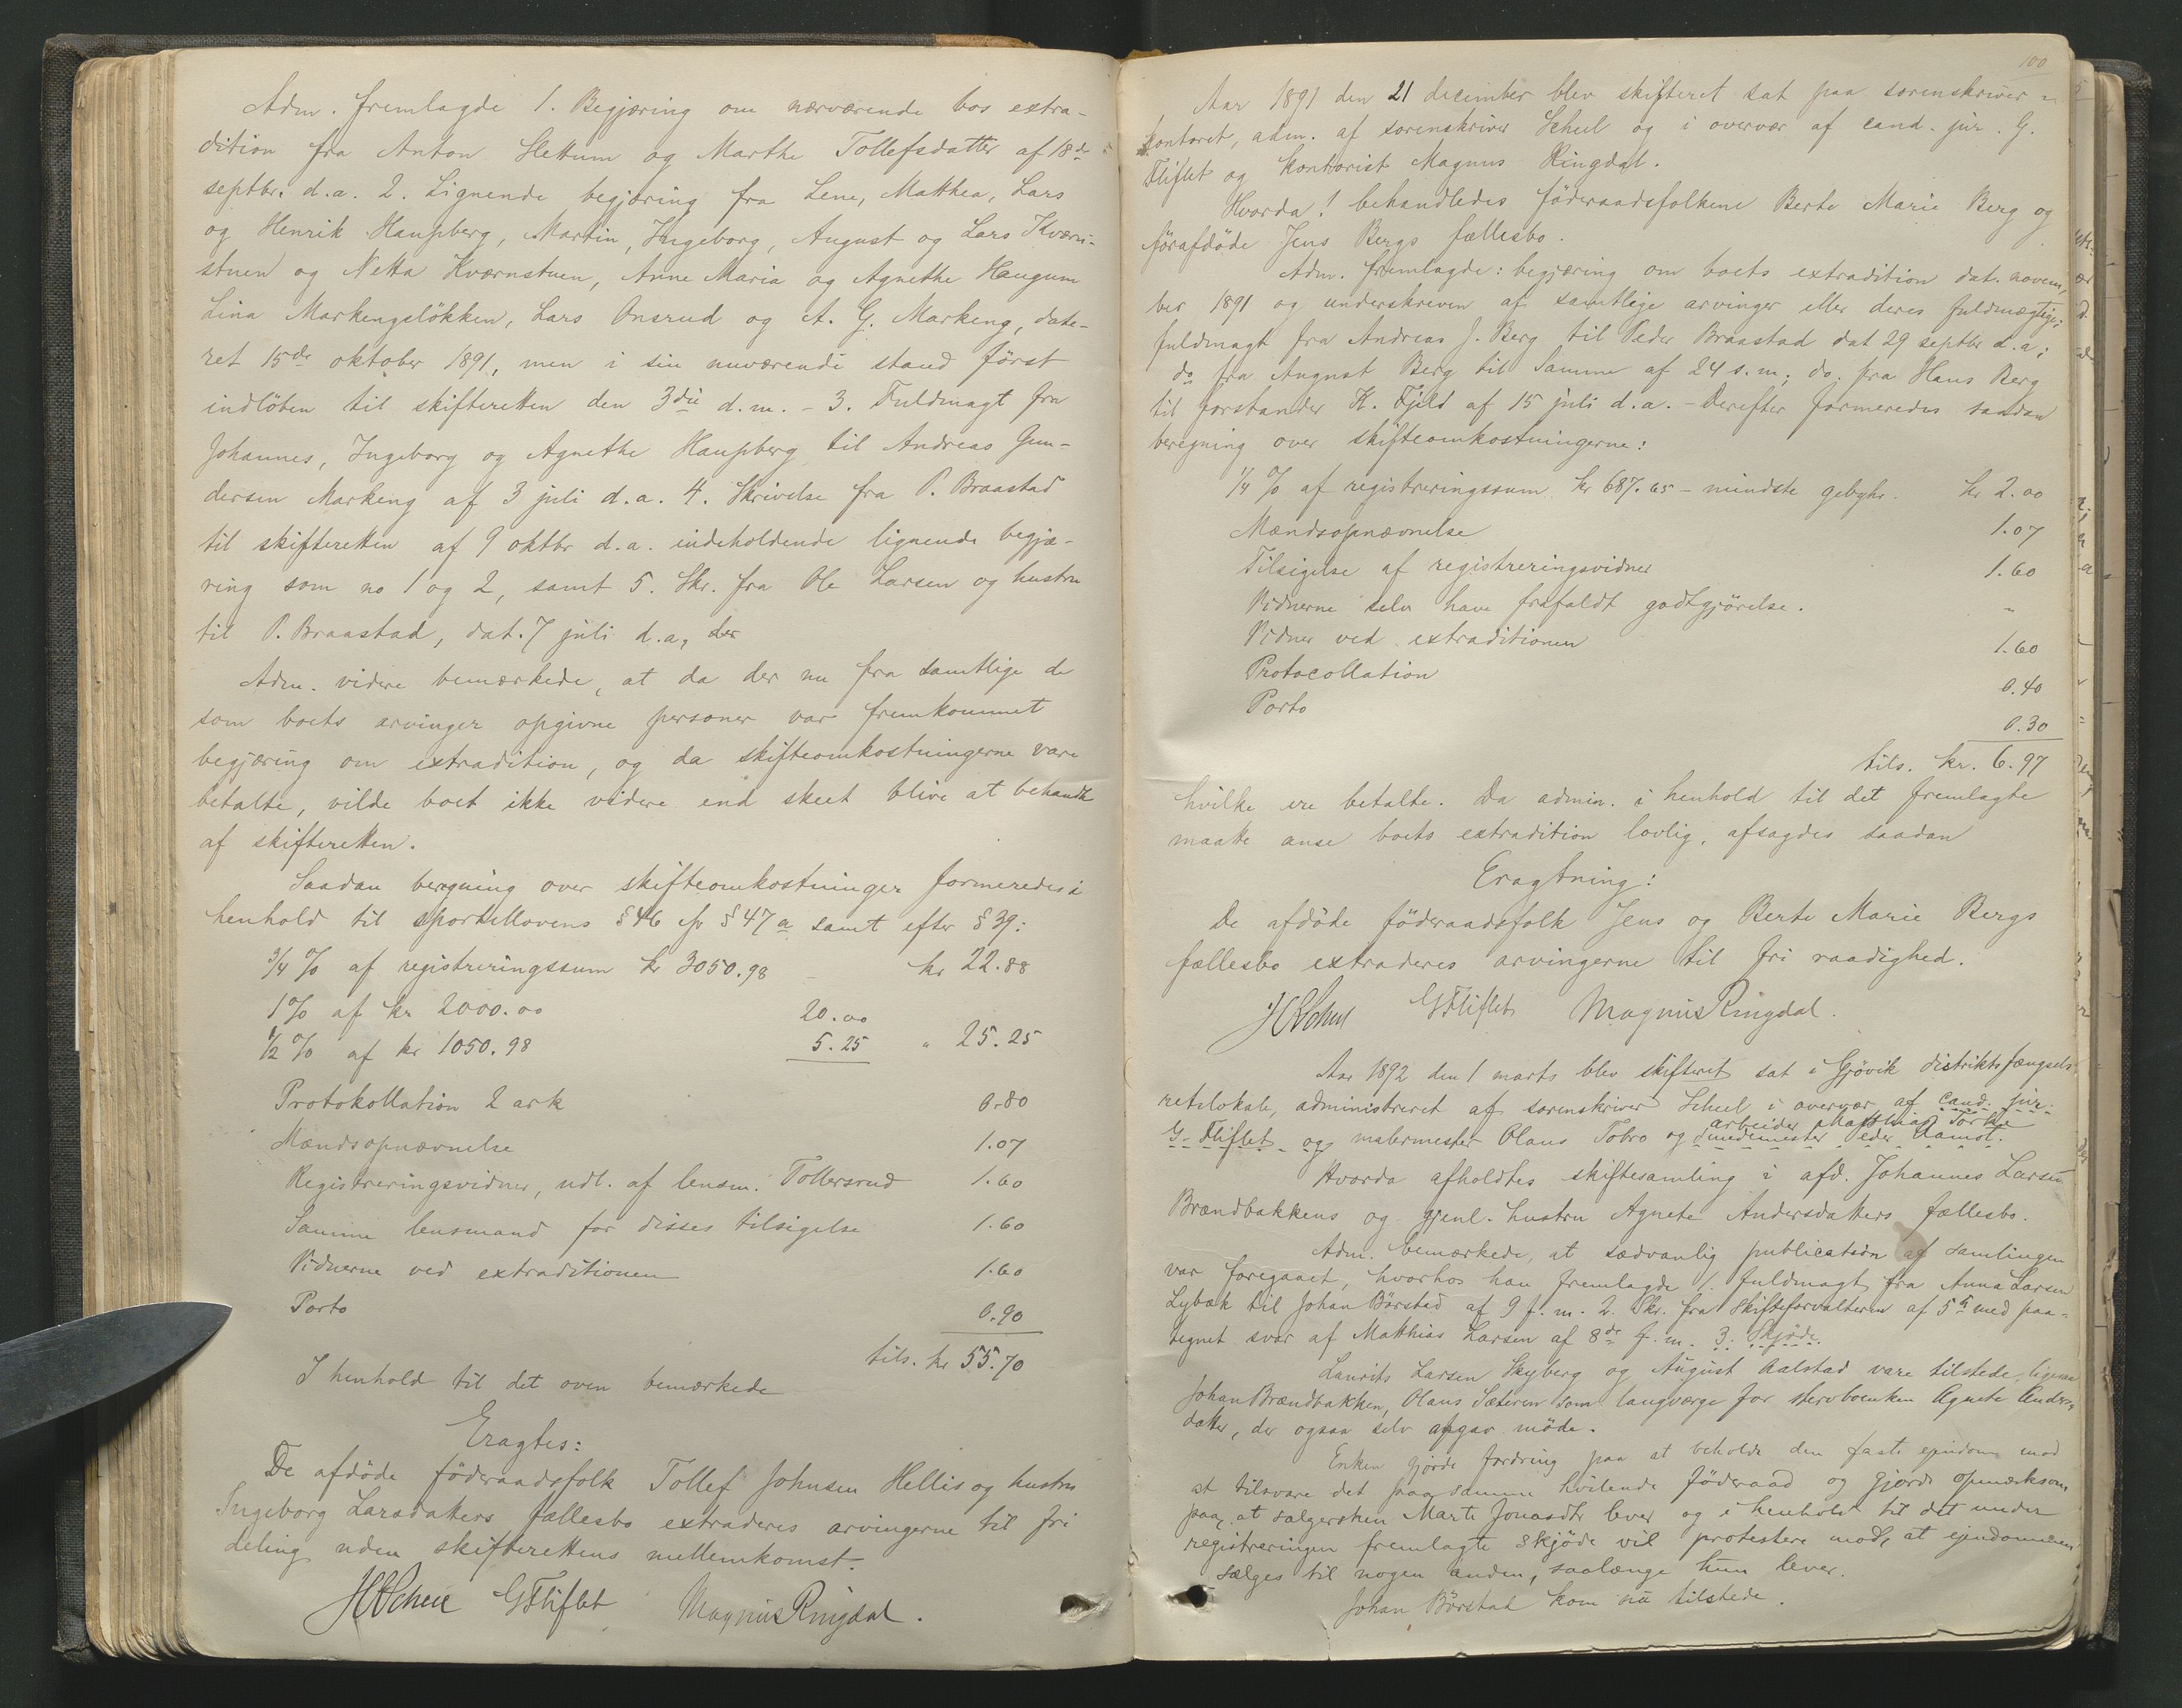 Adm. fremlagde 1. Begjæring om nærværende bos extra-
dition fra Anton Slettum og Marthe Tollefsdatter af 18de
septbr. d.a. 2. Lignende begjæring fra Lene, Mathea, Lars
og Henrik Haugsberg, Martin, Ingeborg, August og Lars Kværn-
stuen og Netta Kværnstuen, Anne Maria og Agnethe Haugum
Lina Markengsløkken, Lars Onsrud og A. G. Markeng, date-
ret 15de oktober 1891, men i sin nuværende stand først
indløben til skifteretten den 3die d.m. - 3. Fuldmagt fra
Johannes, Ingeborg og Agnethe Haugsberg til Andreas Gun-
dersen Markeng af 3 juli d.a. 4. Skrivelse fra P. Braastad
til skifteretten af 9 oktbr d.a. indeholdende lignende begjæ-
ring som no 1 og 2, samt 5. Skr. fra Ole Larsen og hustru
til P. Braastad, dat. 7 juli d.a,
Adm. videre bemærkede, at da der nu fra samtlige de
som boets arvinger opgivne personer var fremkommet
begjæring om extradition, og da skifteomkostningerne vare
betalte, vilde boet ikke videre end skeet blive at behandle
af skifteretten.
Saadan beregning over skifteomkostninger formeredes i
henhold til sportellovens § 46 cfr § 47 a samt efter § 39:
3/4 % af registreringssum kr 3050.98 - kr 22.88
1 % af kr 2000.00 20.00
1/2 % af kr 1050.98 5.25 " 25.25
Protokollation 2 ark 0.80
Mændsopnævnelse 1.07
Registreringsvidner, udl. af lensm. Tollersrud 1.60
Samme lensmand for disses tilsigelse 1.60
Vidnerne ved extraditionen 1.60
Porto 0.90
tils. kr 55.70
I henhold til det oven bemærkede
Eragtes:
De afdøde føderaadsfolk Tollef Johnsen Hellis og hustru
Ingeborg Larsdatters fællesbo extraderes arvingerne til fri
deling uden skifterettens mellemkomst.
HScheel GFliflet Magnus Ringdal.
100
Aar 1891 den 21 december blev skifteret sat paa sorenskriver-
kontoret, adm. af sorenskriver Scheel og i overvær af cand. jur. G.
Fliflet og kontorist Magnus Ringdal.
Hvorda! behandledes føderaadsfolkene Berte Marie Berg og
førafdøde Jens Bergs fællesbo.
Adm. fremlagde: begjæring om boets extradition dat. novem-
ber 1891 og underskreven af samtlige arvinger eller deres fuldmægtige;
fuldmagt fra Andreas J. Berg til Peder Braastad dat 29 septbr d.a;
do fra August Berg til Samme af 24 s.m; do. fra Hans Berg
til forstander K. Fjeld af 15 juli d.a. - Derefter formeredes saadan
beregning over skifteomkostningerne:
1/4 % af registreringssum kr 687.65 - mindste gebyhr. kr 2.00
Mændsopnævnelse 1.07
Tilsigelse af registreringsvidner 1.60
Vidnerne selv have frafaldt godtgjørelse. "
Vidner ved extraditionen 1.60
Protocollation 0.40
Porto 0.30
tils. kr. 6.97
hvilke ere betalte. Da admin. i henhold til det fremlagte
maatte anse boets extradition lovlig, afsagdes saadan
Eragtning:
De afdøde føderaadsfolk Jens og Berte Marie Bergs
fællesbo extraderes arvingerne til fri raadighed.
HScheel GFliflet Magnus Ringdal.
Aar 1892 den 1 marts blev skifteret sat i Gjøvik distriktsfængsels
retslokale, administreret af sorenskriver Scheel i overvær af cand. jur.
G. Fliflet og malermester Olaus Tobro og smedemester
arbeider Matthias
Hvorda afholdtes skiftesamling i afd. Johannes Larsen
Brændbakkens og gjenl. hustru Agnete Andersdatters fællesbo.
Adm. bemærkede, at sædvanlig publication af samlingen
var foregaaet, hvorhos han fremlagde 1. fuldmagt fra Anna Larsen
Lybæk til Johan Børstad af 9 f.m. 2. Skr. fra skifteforvalteren af 5te med paa-
tegnet svar af Matthias Larsen af 8de f.m. 3. Skjøde.
Laurits Larsen Skyberg og August Aalstad vare tilstede, ligesaa
Johan Brændbakken, Olaus Sæteren som laugværge for stervboenken Agnete Anders-
datter, der ogsaa selv afgav møde.
Enken gjorde fordring paa at beholde den faste eiendom mod
at tilsvare det paa samme hvilende føderaad og gjorde opmærksom
paa, at sælgersken Marte Jonasdtr lever og i henhold til det under
registreringen fremlagte skjøde vil protestere mod, at ejendommen
sælges til nogen anden, saalænge hun lever.
Johan Børstad kom nu tilstede.